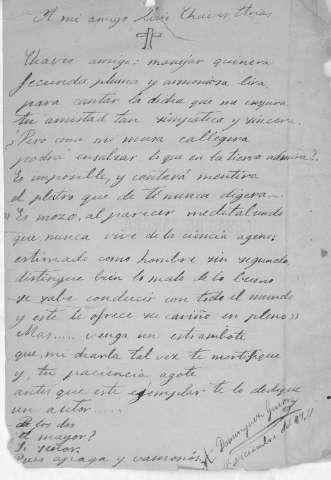 A mi amigo Luis Chaves Arias
Chaves amigo: manejar quisiera
fecunda pluma y armoniosa lira
para cantar la dicha que me
tu amistad tan simpática y sincera.
¿Pero como mi musa callejera
podrá ensalzar lo que en la tierra admira?.
Es imposible, y cantará mentira
el plectro que de tí nunca dijera.-
"Es mozo, al parecer meditabundo
que nunca vive de la ciencia ageno;
estimado como hombre sin segundo,
distingue bien lo malo de lo bueno
se sabe conducir con todo el mundo
y este te ofrece su cariño en pleno"
Mas..... venga un estrambote
que, mi charla tal vez te mortifique
y, tu paciencia agote
antes que este ejemplar te lo dedique
un autor.....
de los dos
el mayor?
Si señor.
Pues apaga y vamonós.
Dominguez
Diciembre del